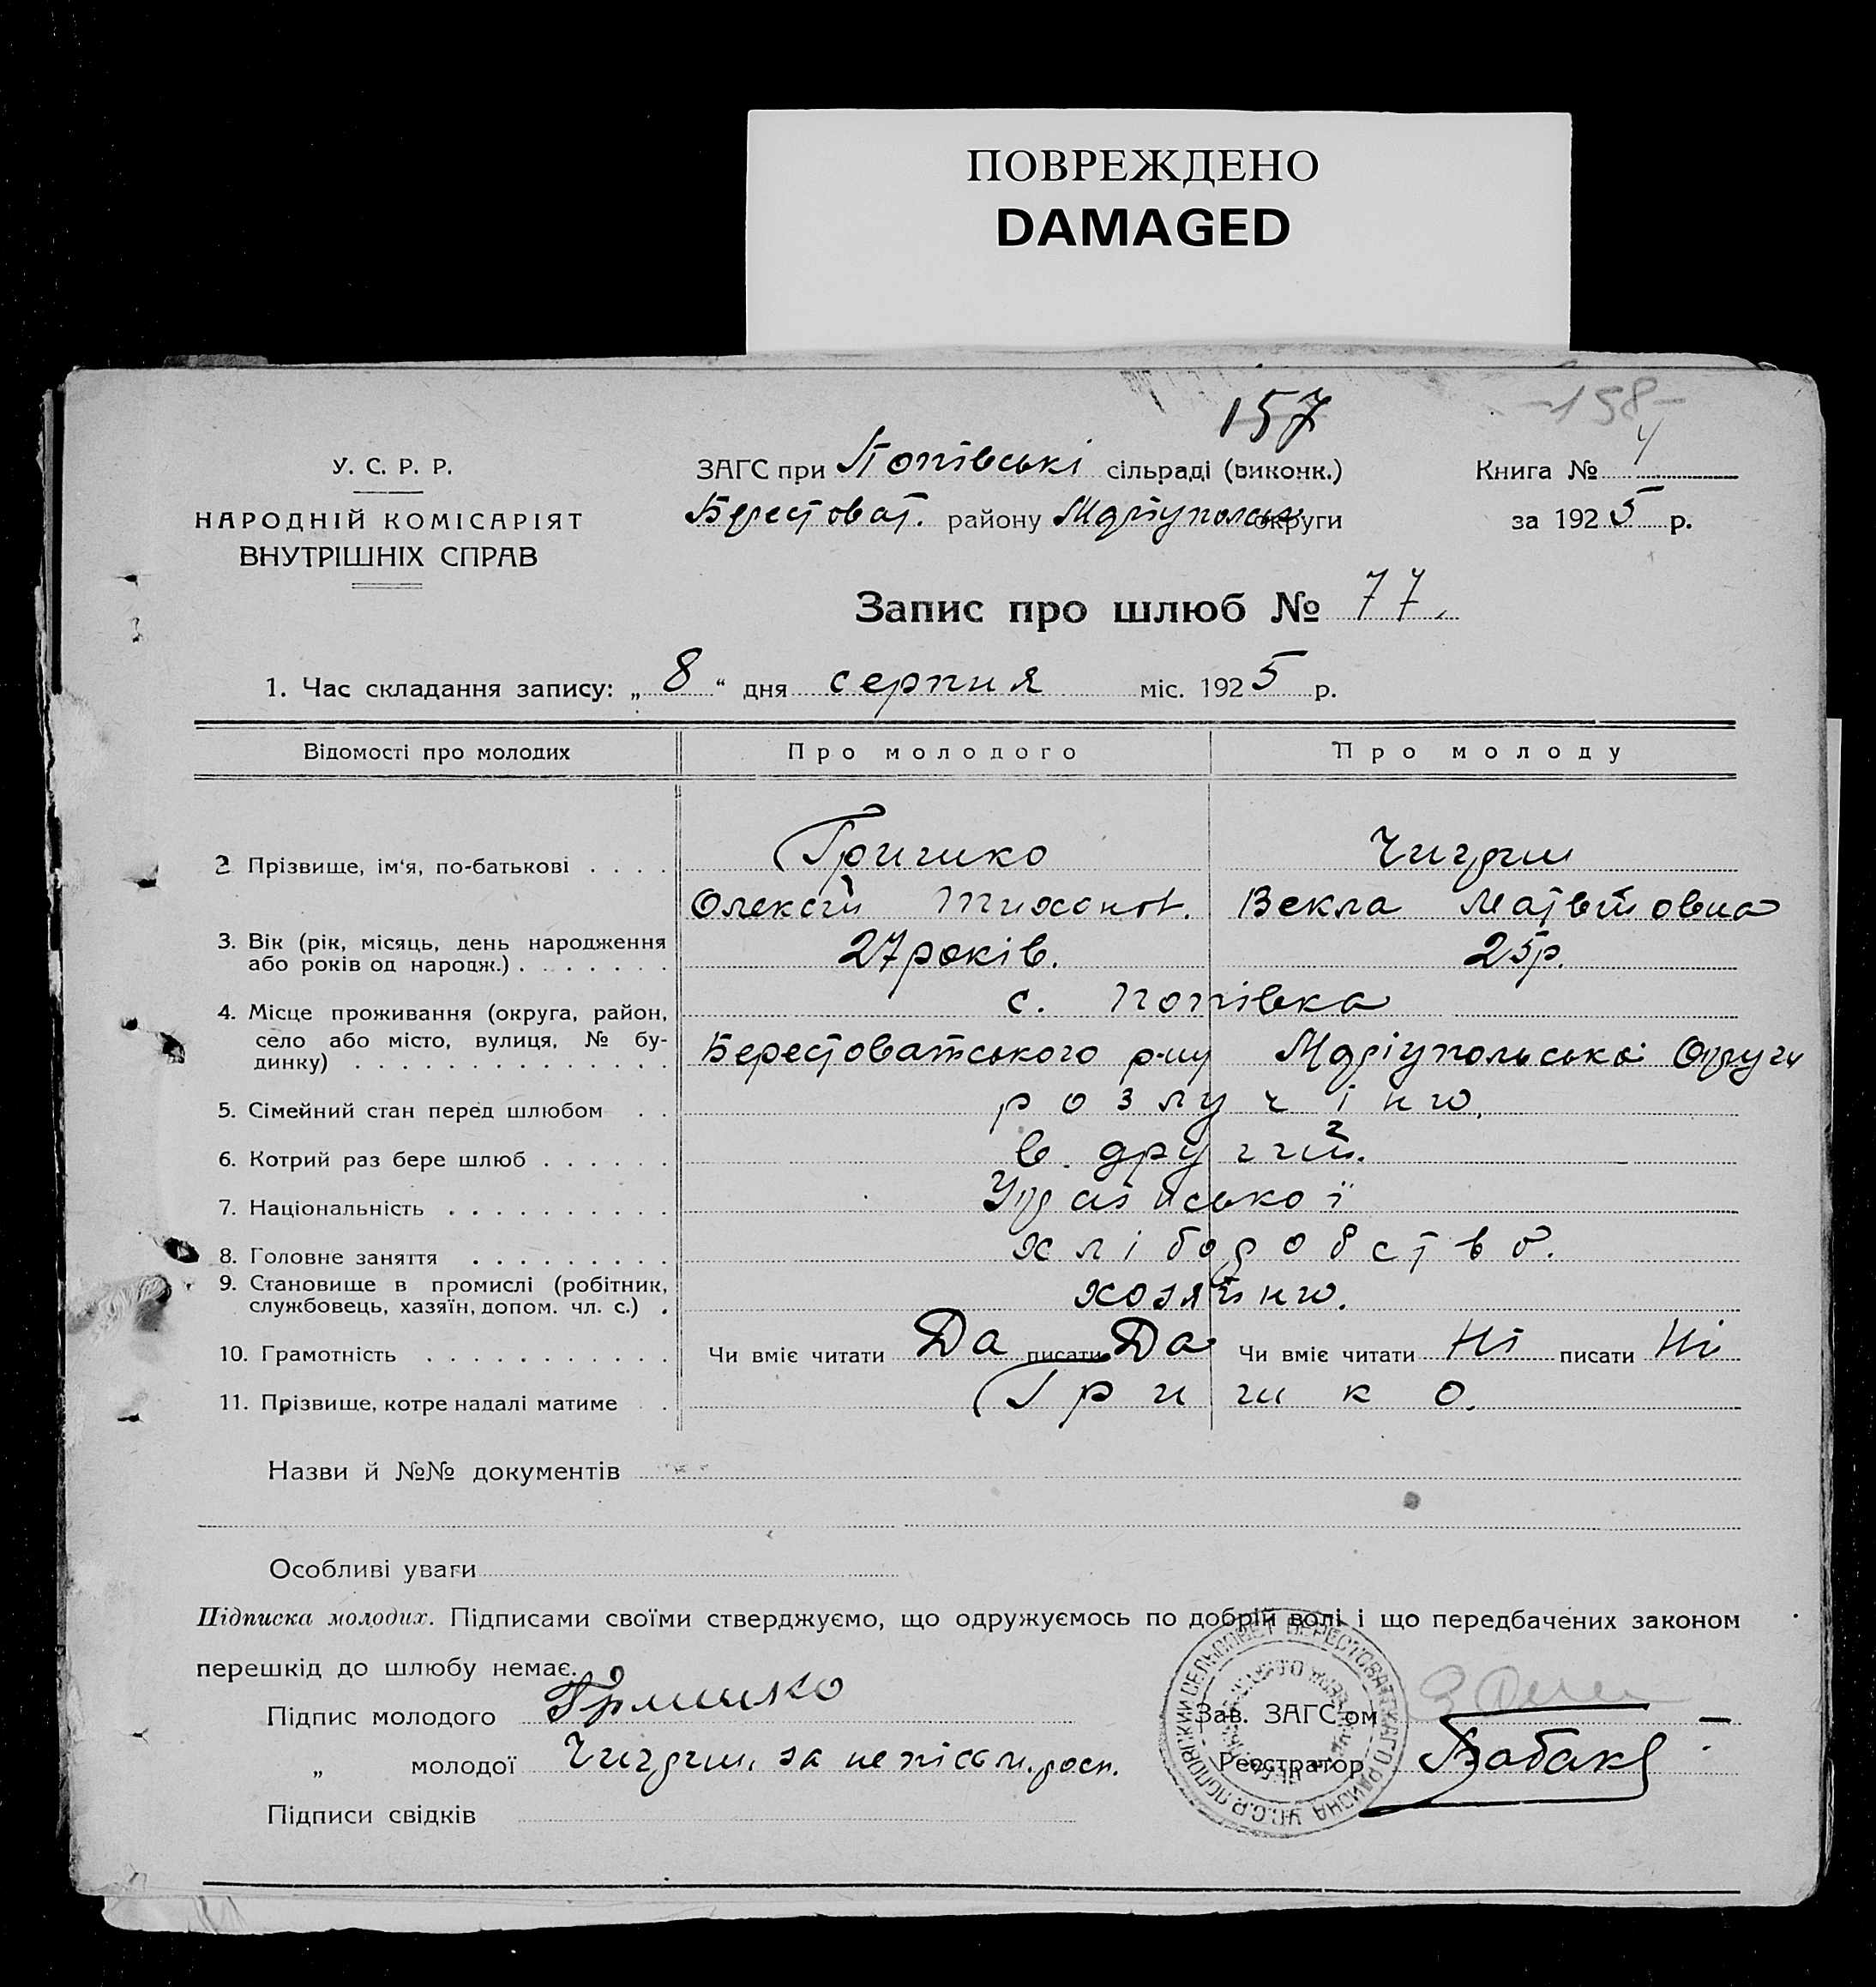 ПОВРЕЖДЕНО
DAMAGED
157
-158-
У. С. Р. Р.
НАРОДНІЙ КОМІСАРІЯТ
ВНУТРІШНІХ СПРАВ
ЗАГС при Попівські сільраді (виконк.)
Берестоват. району Маріупольськ округи
Книга № 4
за 1925 р.
Запис про шлюб № 77.
1. Час складання запису: „ 8 “ дня серпня міс. 1925 р.
Відомості про молодих Про молодого Про молоду
2 Прізвище, ім‘я, по-батькові . . . . Гришко Чигрин
Олексій Тихонов. Векла Матвійовна
3. Вік (рік, місяць, день народження 27 років. 25р.
або років од народж.) . . . . . . .
4. Місце проживання (округа, район, с. Попівка
село або місто, вулиця, № бу- Берестоватського р-ну Маріупольськоі Округи
динку) . . . . . . . . . . . . . .
5. Сімейний стан перед шлюбом . . розлучіни.
6. Котрий раз бере шлюб . . . . . . в другий.
7. Національність . . . . . . . . . . Украінської
8. Головне заняття . . . . . . . . . хліборобство.
9. Становище в промислі (робітник,
службовець, хазяїн, допом. чл. с.) . хозяїни.
10. Грамотність . . . . . . . . . . . Чи вміє читати Да писати Да Чи вміє читати Ні писати Ні
11. Прізвище, котре надалі матиме . Гришко.
Назви й №№ документів
Особливі уваги
Підписка молодих. Підписами своїми стверджуємо, що одружуємось по добрій волі і що передбачених законом
перешкід до шлюбу немає.
Підпис молодого Гришко
„ молодої Чигрин, за непісьм. росп.
Підписи свідків
Зав. ЗАГС‘ом
Реєстратор Бабак
У.С.С.Р. ПОПОВСКИЙ СЕЛЬСОВЕТ БЕРЕСТОВАТСКАГО РАЙОНА